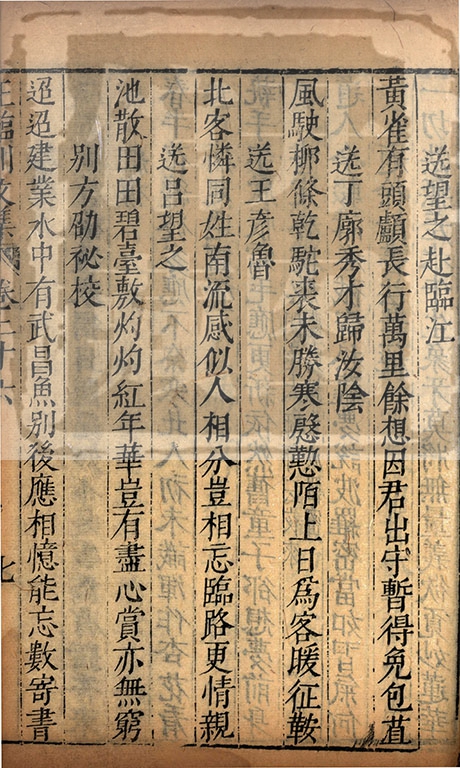 送望之赴臨江
黃雀有頭顱長行萬里餘想因君出守暫得免包苴
送丁廓秀才歸汝陰
風駛柳條乾駝裘未勝寒慇懃陌上日爲客暖征鞍
送王彥魯
北客憐同姓南流感似人相分豈相忘臨路更情親
送呂望之
池散田田碧臺敷灼灼紅年華豈有盡心賞亦無窮
別方劭祕校
迢迢建業水中有武昌魚別後應相憶能忘數寄書
王臨川文集 卷二十六
七